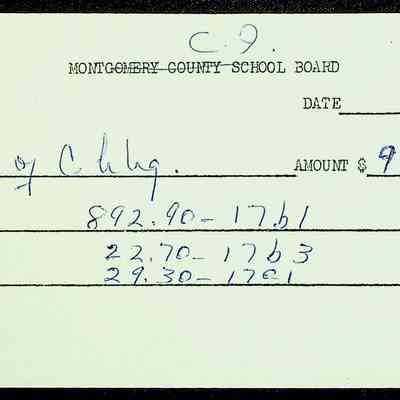 C.I.
MONTGOMERY COUNTY SCHOOL BOARD
DATE
of C AMOUNT $ 9
892.90-17b1
22.70-17b3
29.30-17e1